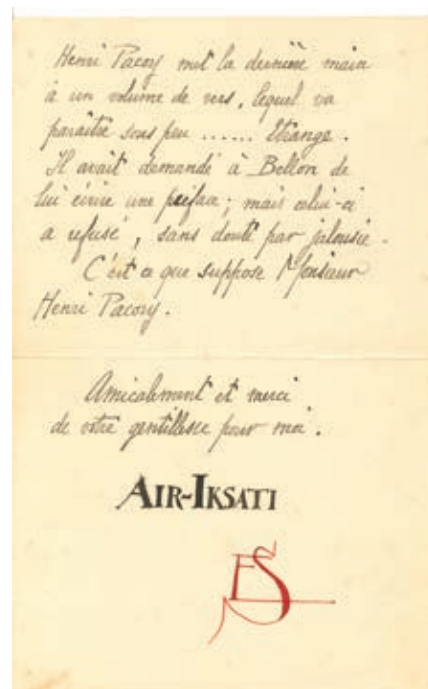 Henri Pacory met la dernière main
à un volume de vers, lequel va
paraître sous peu ...... Etrange.
Il avait demandé à Bellon de
lui écrire une préface; mais celui-ci
a refusé, sans doute par jalousie.
C'est ce que suppose Monsieur
Henri Pacory.
Amicalement et merci
de votre gentillesse pour moi.
AIR-IKSATI
ES